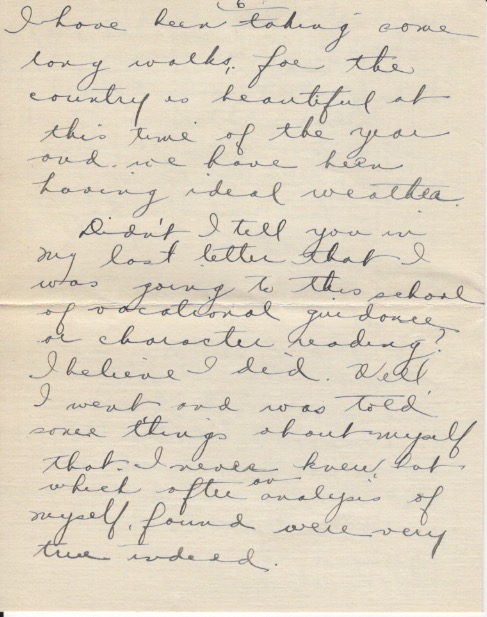 6
I have been taking some
long walks, for the
country is beautiful at
this time of the year
and we have been
having ideal weather.
Didn't I tell you in
my last letter that I
was going to this school
of vocational guidance
or character reading?
I believe I did. Well
I went and was told
some things about myself
that I never knew, but
which after an analysis of
myself, found were very
true indeed.